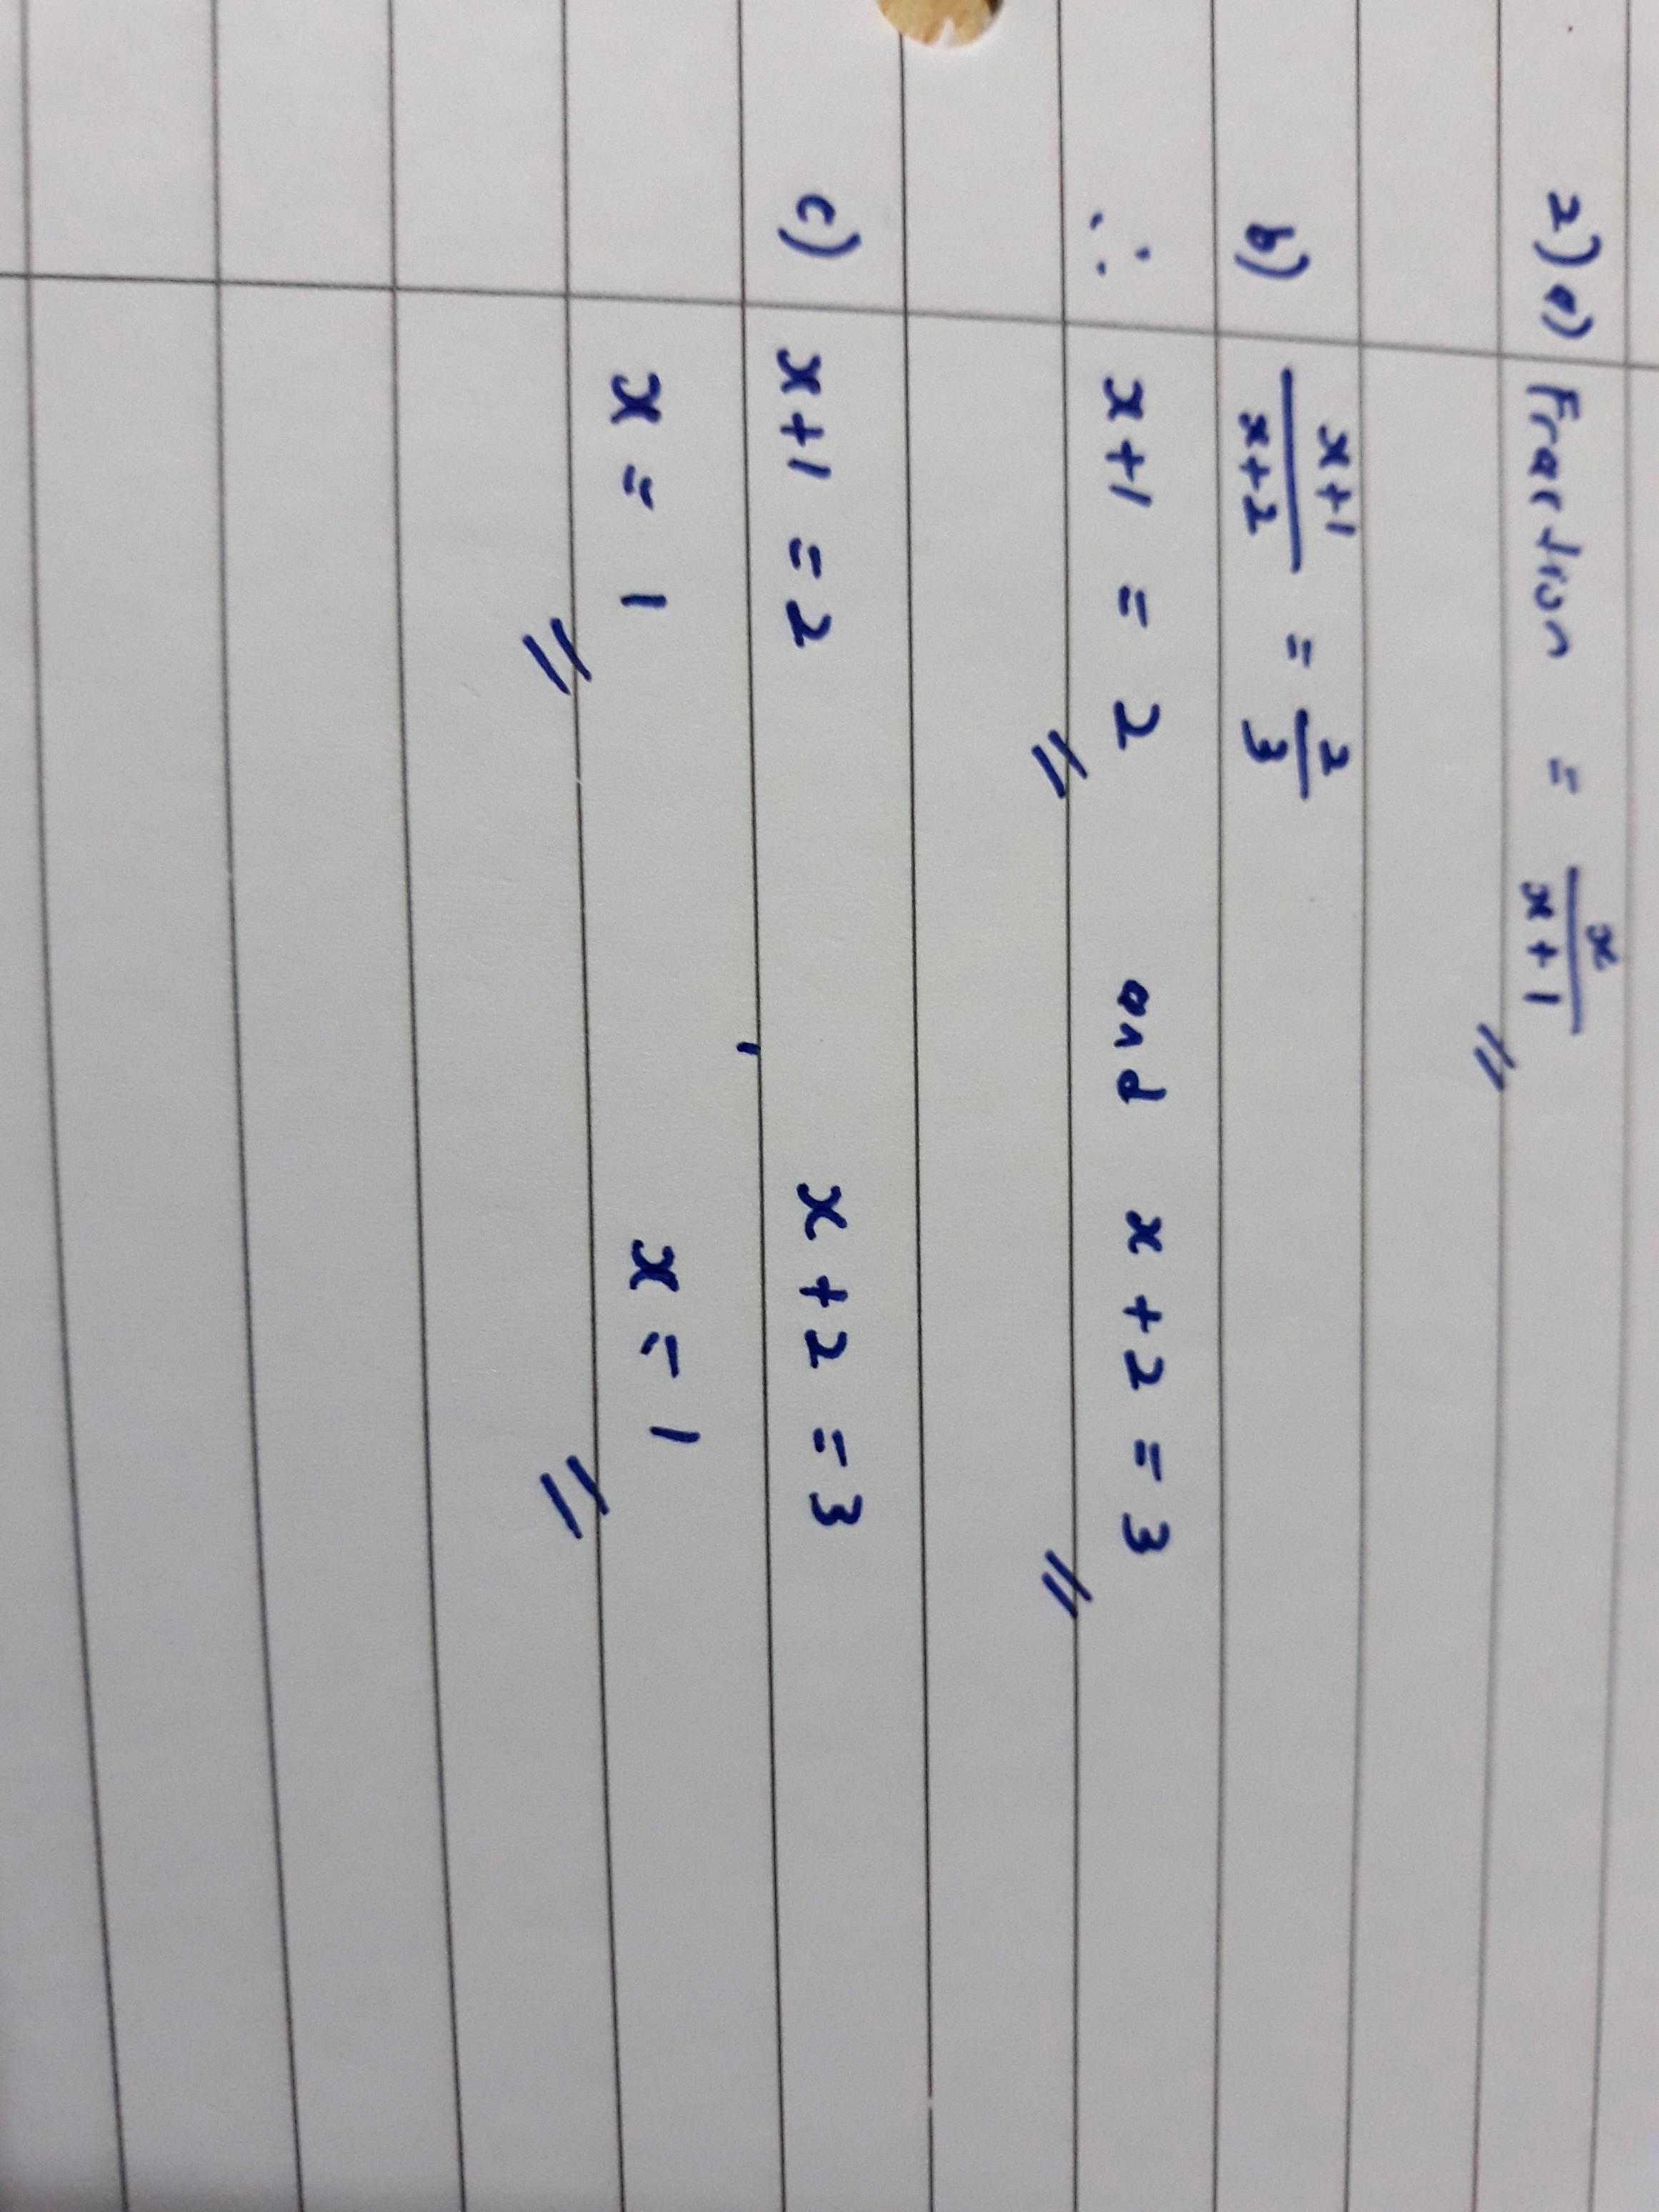 2) a) Fraction = x/(x+1)
b) (x+1)/(x+2) = 2/3
∴ x+1 = 2 and x+2 = 3
c) x+1 = 2 x+2 = 3
x = 1 x = 1